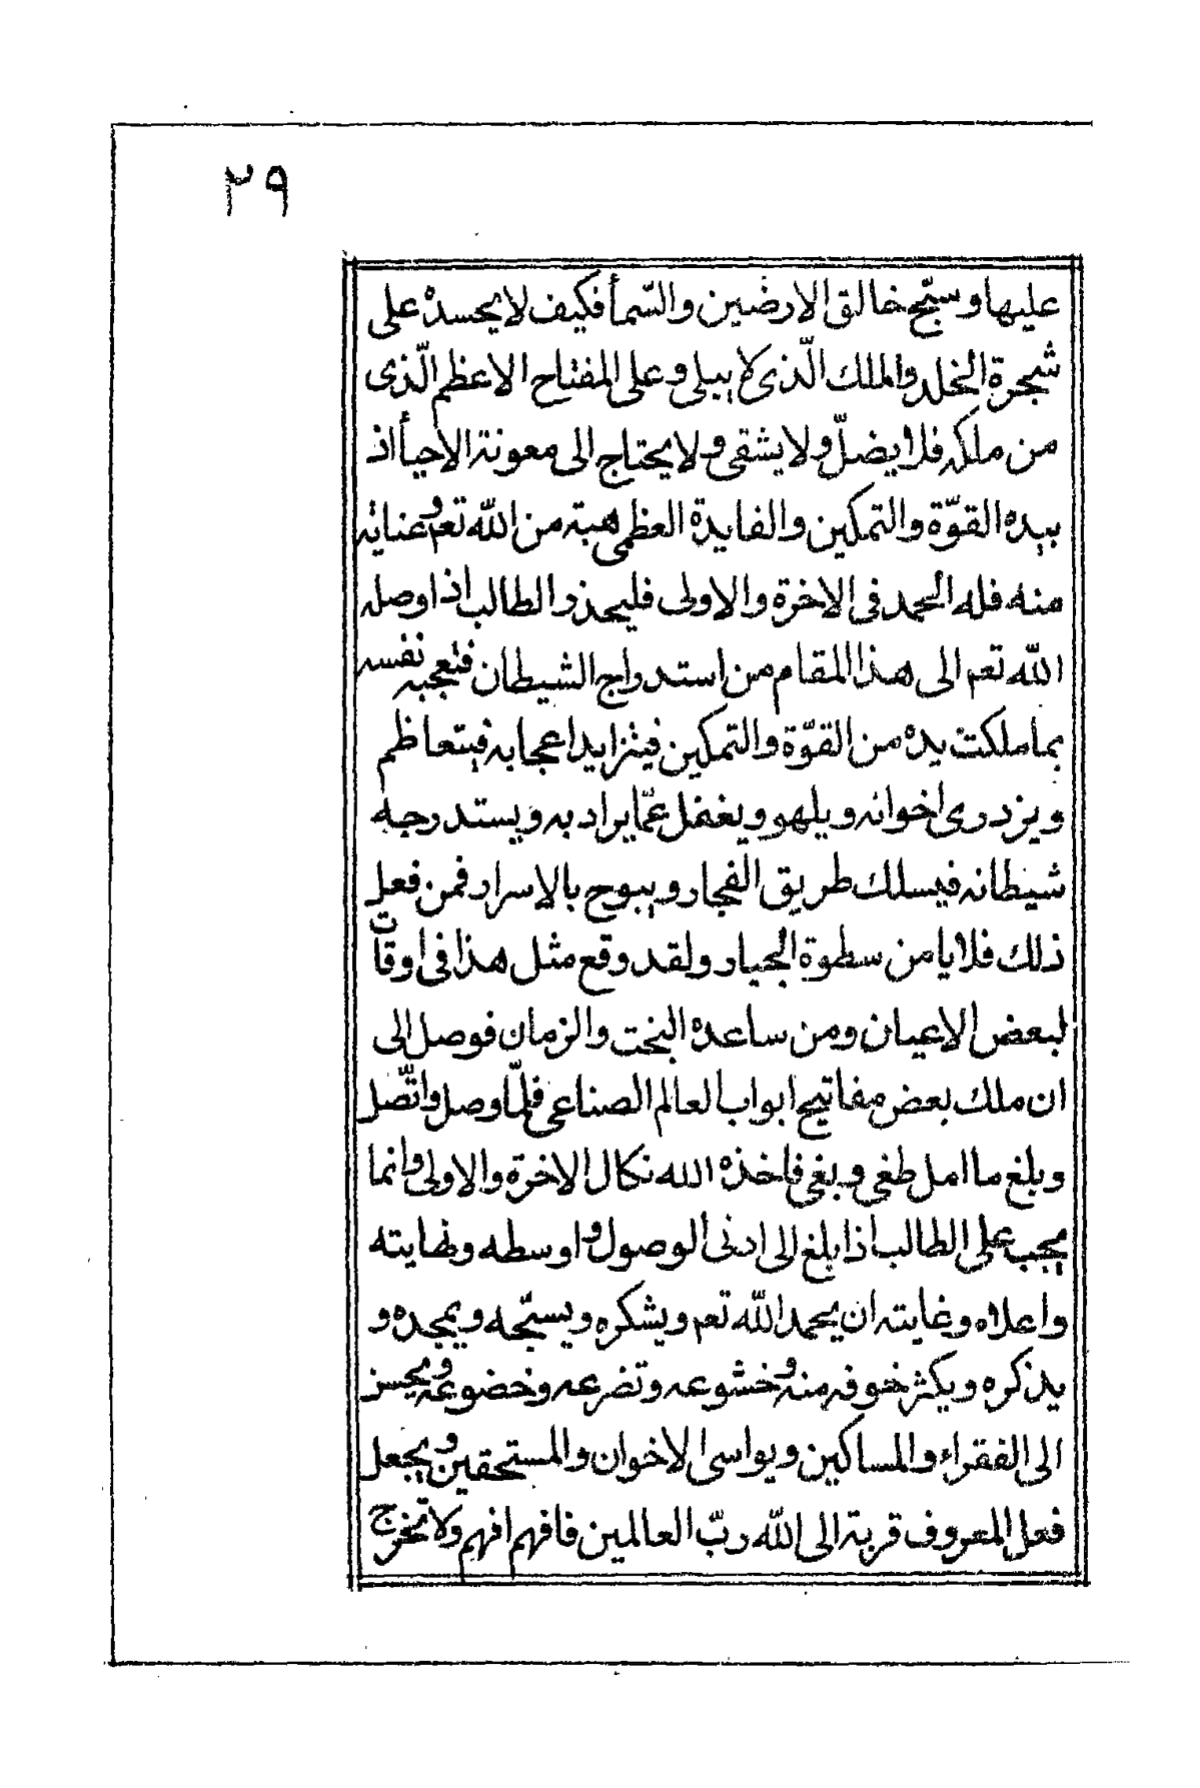 ٣٩
عليها وسبّح خالق الارضين والسّمأ فكيف لا يحسده على
شجرة الخلد والملك الّذى لا يبلى وعلى المفتاح الاعظم الّذى
من ملكه فلا يضلّ ولا يشقى ولا يحتاج الى معونة الاحيأ اذ
بيده القوّة والتمكين والفايدة العظمى هبة من اللّه تعم وعناية
منه فله الحمد فى الاخرة والاولى فليحذر الطالب اذا وصله
اللّه تعم الى هذا المقام من استدراج الشيطان فتعجبه نفسه
بما ملكت يده من القوّة والتمكين فيتزايد اعجابه فيتعاظم
ويزدرى اخوانه ويلهو ويغفل عمّا يراد به ويستدرجه
شيطانه فيسلك طريق الفجار ويبوح بالاسرار فمن فعل
ذلك فلا يامن سطوة الجبار ولقد وقع مثل هذا فى اوقات
لبعض الاعيان ومن ساعده البخت والزمان فوصل الى
ان ملك بعض مفاتيح ابواب العالم الصناعى فلمّا وصل واتّصل
وبلغ ما امل طغى وبغى فاخذه الله نكال الاخرة والاولى وانما
يجب على الطالب اذا بلغ الى ادنى الوصول واوسطه ونهايته
واعلاه وغايته ان يحمد اللّه تعم ويشكره ويسبّحه ويمجده و
يذكره ويكثر خوفه منه وخشوعه وتضرعه وخضوعه ويحسن
الى الفقراء والمساكين ويواسى الاخوان والمستحقين ويجعل
فعل المعروف قربة الى اللّه ربّ العالمين فافهم افهم ولا تخرج